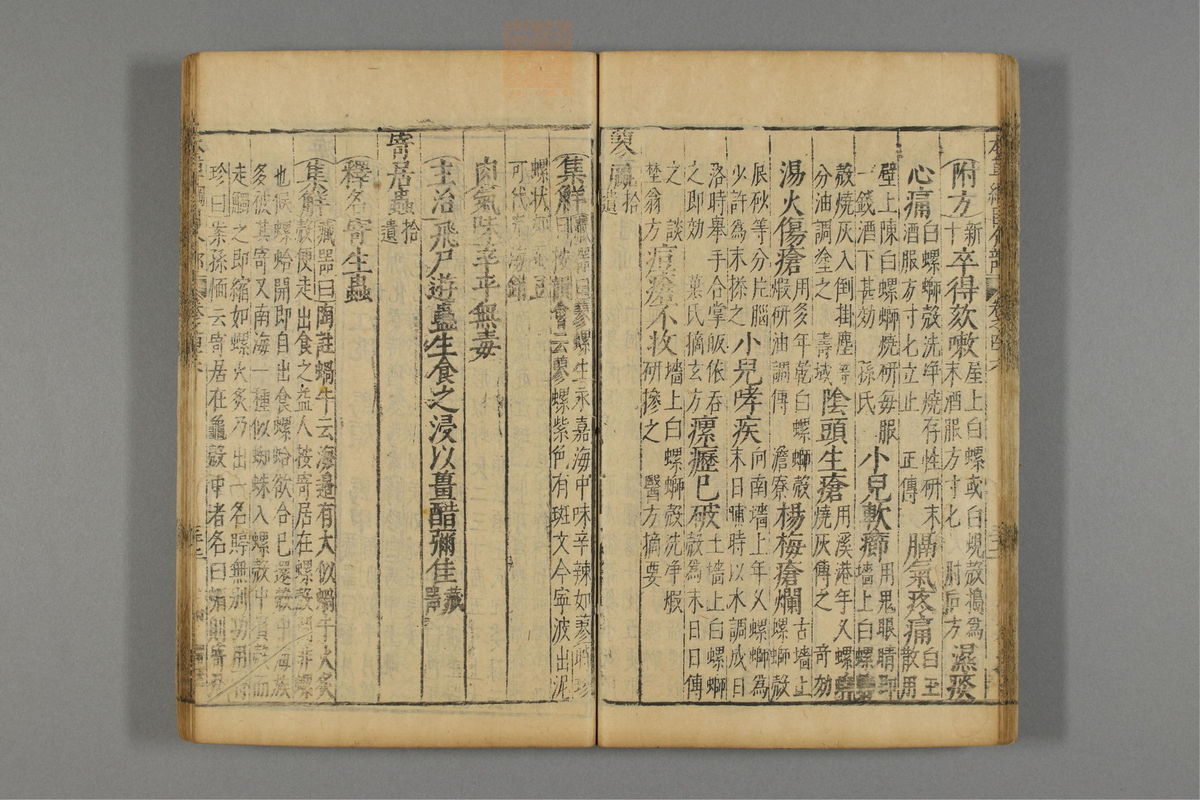 附方新十卒得欬嗽屋上白螺或白蜆殼搗為末酒服方寸匕 肘后方濕痰
心痛白螺螄殼洗淨燒存性研末酒服方寸匕立止 正傳膈氣疼痛白玉散用
壁上陳白螺螄燒研每服一錢酒下甚効 孫氏小兒軟癤用鬼眼睛即墻上白螺螄
殼燒灰入倒掛塵等分油調塗之 壽域陰頭生瘡用溪港年久螺螄燒灰傅之 奇効
湯火傷瘡用多年乾白螺螄殼煅研油調傅 澹寮楊梅瘡爛古墻上螺螄殼
辰砂等分片腦少許為末搽之小兒哮疾向南墻上年久螺螄為末日晡時以水調成日
落時舉手合掌皈依吞之即効 葉氏摘玄方瘰癧已破土墻上白螺螄殼為末日日傅
之 談埜翁方痘瘡不收墻上白螺螄殼洗淨煅研摻之 醫方摘要
蓼螺拾遺
集解藏器曰蓼螺生永嘉海中味辛辣如蓼
韻會云蓼螺紫色有斑文今寧波出泥
螺狀如
可代
肉氣味辛平無毒
主治飛尸遊蠱生食之浸以薑醋彌佳藏器
寄居蟲拾遺
釋名寄生蟲
集解藏器曰陶註蝸牛云海邊有大似蝸牛火炙
殼便走出食之益人按寄居在螺殼間非螺
也候螺蛤開即自出食螺蛤欲合已還殼中海族
多被其寄又南海一種似蜘蛛入螺殼中負殼而
走觸之即縮如螺火炙乃出一名𧍧無別功用時
珍曰案孫愐云寄居在龜殼中者名曰蝞則寄居
本草綱目介部